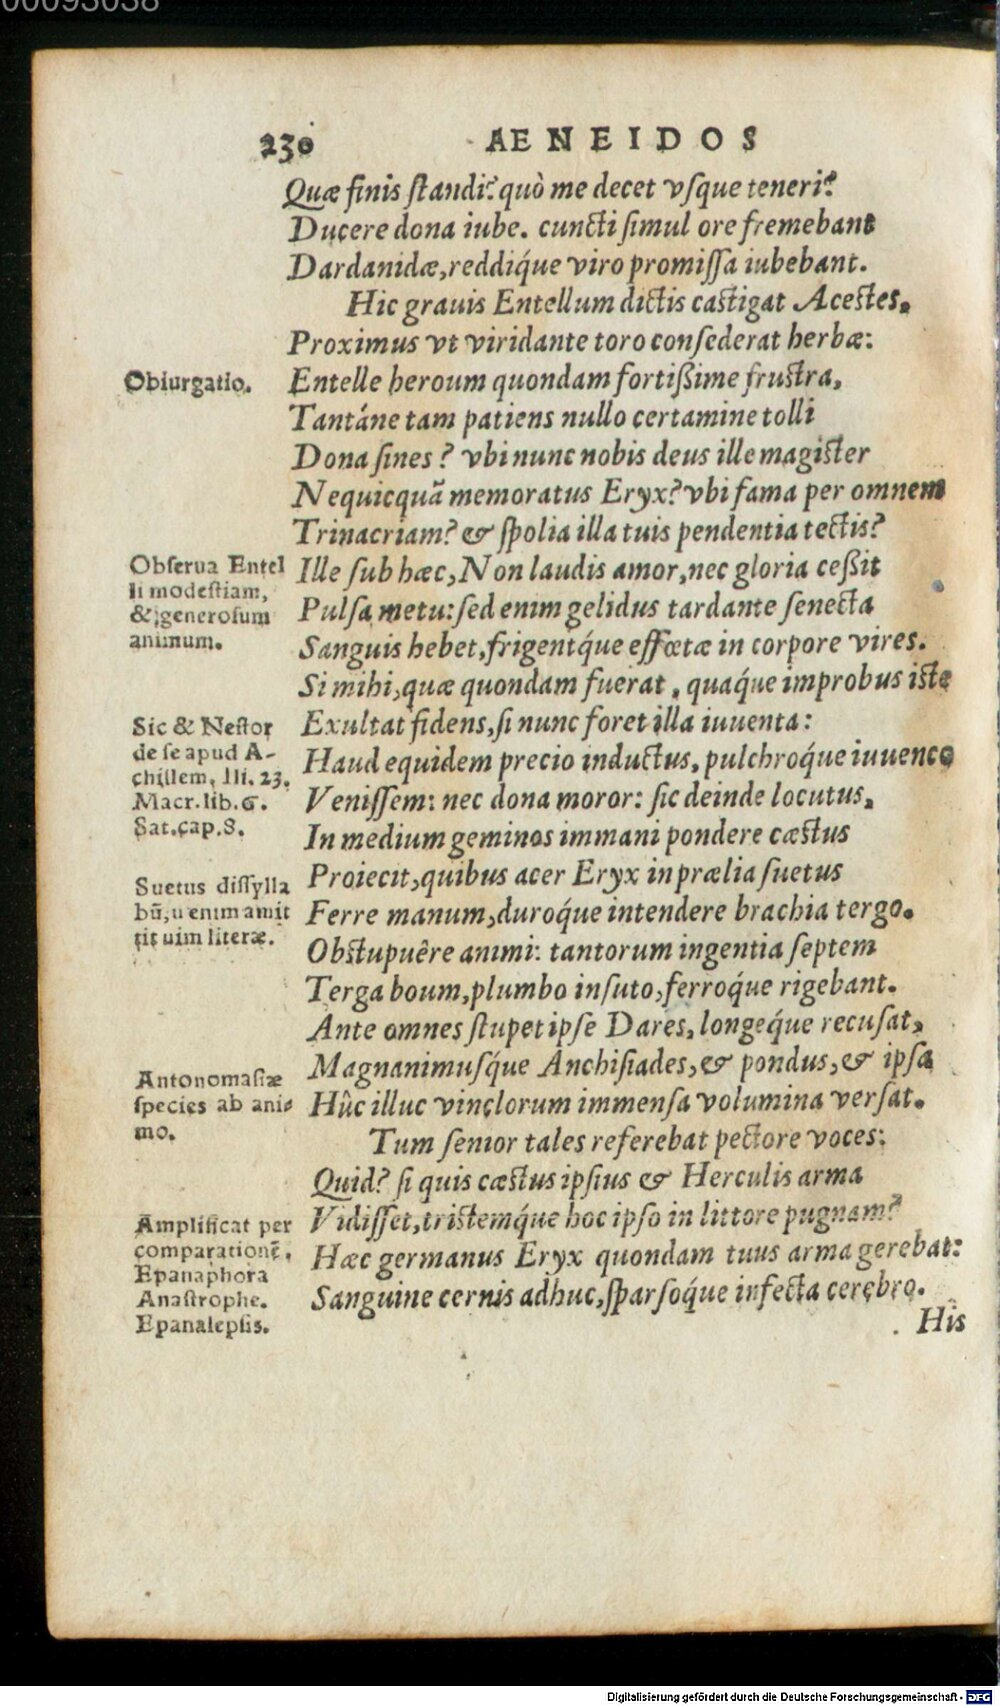 00093038
230 AENEIDOS
Quæ finis ſtandi? quò me decet vſque teneri?
Ducere dona iube. cuncti ſimul ore fremebant
Dardanidæ, reddiq́ue viro promiſſa iubebant.
Hic grauis Entellum dictis caſtigat Aceſtes,
Proximus vt viridante toro conſederat herbæ:
Obiurgatio.
Entelle heroum quondam fortißime fruſtra,
Tantáne tam patiens nullo certamine tolli
Dona ſines? vbi nunc nobis deus ille magiſter
Nequicquã memoratus Eryx? vbi fama per omnem
Trinacriam? & ſpolia illa tuis pendentia tectis?
Obſerua Entel
li modeſtiam,
& generoſum
animum.
Ille ſub hæc, Non laudis amor, nec gloria ceßit
Pulſa metu: ſed enim gelidus tardante ſenecta
Sanguis hebet, frigentq́ue effœtæ in corpore vires.
Si mihi, quæ quondam fuerat, quaq́ue improbus iſte
Sic & Neſtor
de ſe apud A-
chillem, Ili. 23.
Macr. lib. 6.
Sat. cap. 8.
Exultat fidens, ſi nunc foret illa iuuenta:
Haud equidem precio inductus, pulchroq́ue iuuenco
Veniſſem: nec dona moror: ſic deinde locutus,
In medium geminos immani pondere cæſtus
Suetus diſſylla
bũ, u enim amit
tit uim literæ.
Proiecit, quibus acer Eryx in prælia ſuetus
Ferre manum, duroq́ue intendere brachia tergo.
Obſtupuêre animi: tantorum ingentia ſeptem
Terga boum, plumbo inſuto, ferroq́ue rigebant.
Ante omnes ſtupet ipſe Dares, longeq́ue recuſat,
Antonomaſiæ
ſpecies ab ani-
mo.
Magnanimuſq́ue Anchiſiades, & pondus, & ipſa
Hûc illuc vinclorum immenſa volumina verſat.
Tum ſenior tales referebat pectore voces:
Quid? ſi quis cæſtus ipſius & Herculis arma
Amplificat per
comparationẽ.
Epanaphora
Anaſtrophe.
Epanalepſis.
Vidiſſet, triſtemq́ue hoc ipſo in littore pugnam?
Hæc germanus Eryx quondam tuus arma gerebat:
Sanguine cernis adhuc, ſparſoq́ue infecta cerebro.
His
Digitalisierung gefördert durch die Deutsche Forschungsgemeinschaft - DFG